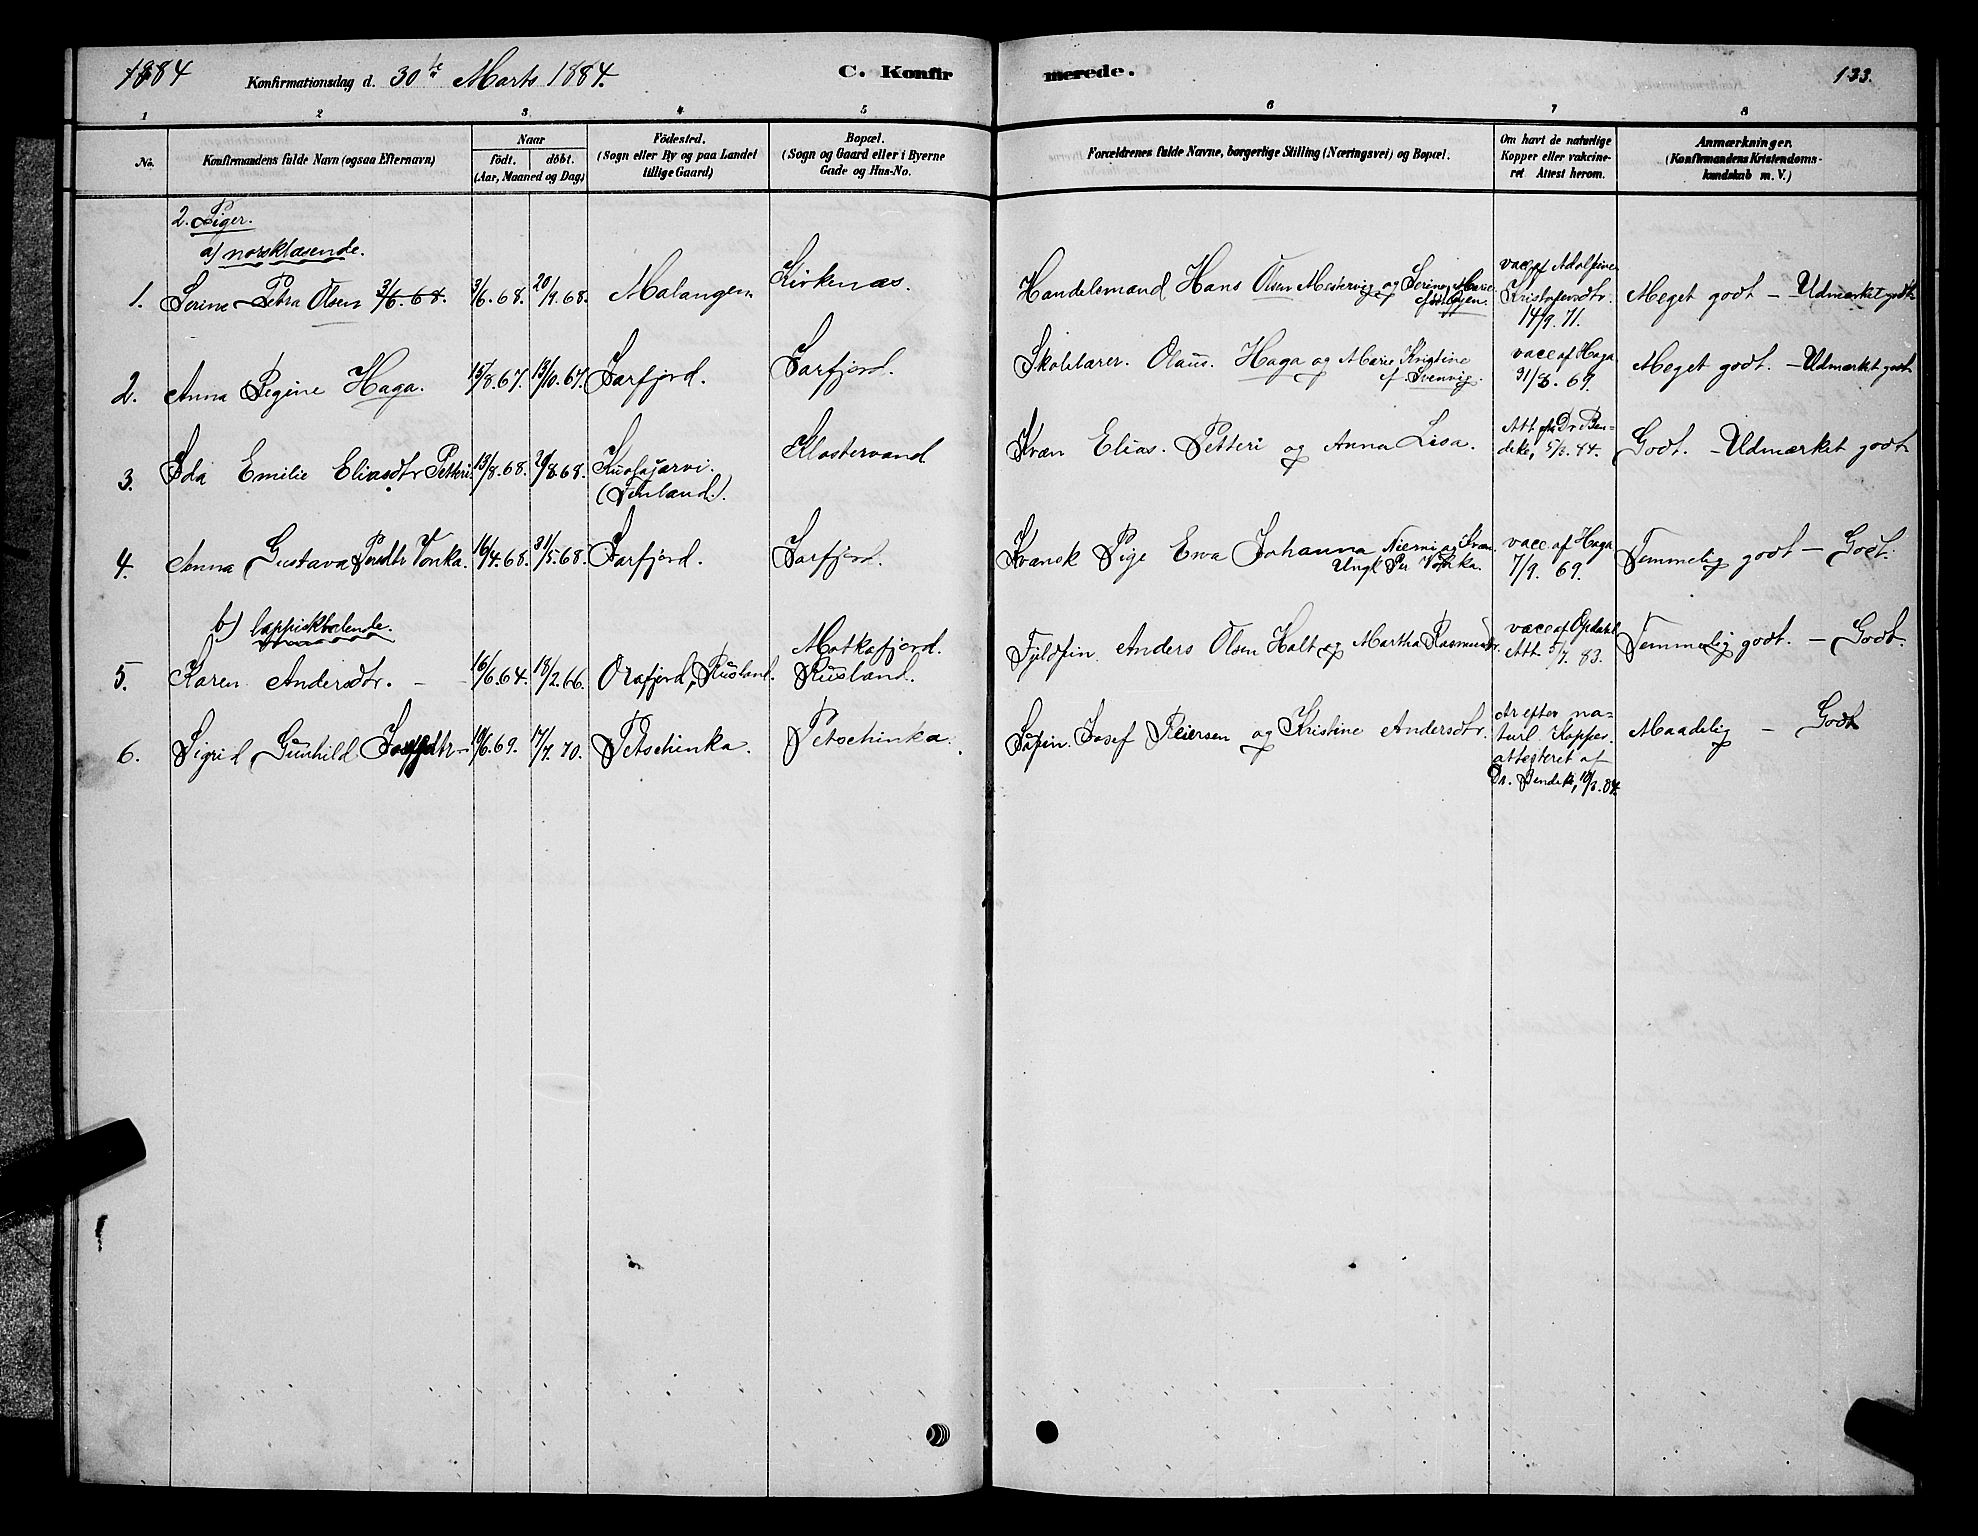 1884 Konfirmationsdag d. 30te Marts 1884. C. Konfir merede. 133.
1 2 3 4 5 6 7 8
No. Konfirmandens fulde Navn (ogsaa Efternavn) Naar født. døbt. (Aar, Maaned og Dag) Födested. (Sogn eller By og paa Landet tillige Gaard) Bopæl. (Sogn og Gaard eller i Byerne Gade og Hus-No. Forældrenes fulde Navne, borgerlige Stilling (Næringsvei) og Bopæl. Om havt de naturlige Kopper eller vakcineret Attest herom. Anmærkninger. (Konfirmandens Kristendomskundskab m. V.)
2. Piger.
a) norsklæsende.
1. Serine Petra Olsen 3/6. 68. 3/6. 68. 20/9. 68. Malangen Kirkenæs. Handelsmand Hans Olsen Mestervig og Serine Marie vacc af Adolfine Kristofersdtr. 14/9. 71. Meget godt – Udmærket godt
2. Anna Regine Haga. 15/8. 67. 13/10. 67. Jarfjord. Jarfjord. Skolelærer. Olaus. Haga og Marie Kristine f. Svenvig. vacc af Haga 31/8. 69. Meget godt. – Udmærket godt
3. Ida Emilie Eliasdtr Petteri 13/8. 68. 29/8. 68. Kuolajarvi. (Finland.) Klostervand. Kvæn Elias. Petteri og Anna Lisa. Att. fra Dr Bendeke, 5/3. 84. Godt. – Udmærket godt
4. Anna Gustava Persdtr Vonka. 16/4. 68. 31/5. 68. Jarfjord. Jarfjord. Kvænsk Pige Eva Johanna Niemi og Kvæn Ungk. Per Vonka. vacc af Haga 7/9. 69. Temmelig godt – Godt.
b) lappisktalende.
5. Karen Andersdtr. – 16/6. 64. 18/2. 66. Orafjord, Rusland. Motkafjord. Rusland. Fjeldfin. Anders Olsen Halt og Martha Rasmusdtr. vacc af Opdahl Att. 5/7. 83. Temmelig godt. – Godt.
6. Sigrid Gunhild Josefsdtr – 19/6. 69. 17/7. 70. Petschinka. Petschinka. Søfin. Josef Reiersen og Kristine Andersdtr. Ar efter naturl Kopper. attesteret af Dr. Bendeke, 10/3. 84. Maadelig – Godt